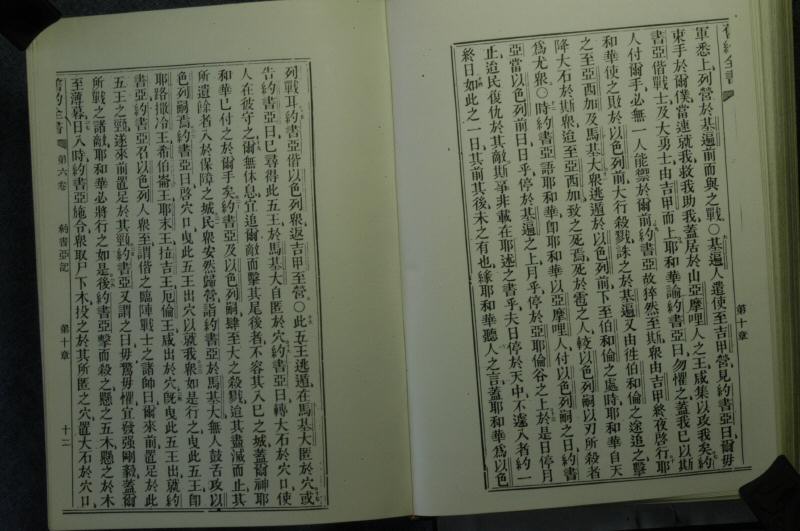 舊約全書
第十章
軍悉上列營於基遍前而與之戰○基遍人遣使至吉甲營見約書亞曰爾毋
束手於爾僕當速就我救我助我蓋居於山亞摩哩人之王咸集以攻我矣約
書亞偕戰士及大勇士由吉甲而上耶和華諭約書亞曰勿懼之蓋我已以斯
人付爾手必無一人能禦於爾前約書亞故猝然至斯衆由吉甲終夜啓行耶
和華使之敗於以色列前大行殺戮誅之於基遍又由往伯和倫之途追之擊
之至亞西加及馬基大衆逃遁於以色列前下至伯和倫之處時耶和華自天
降大石於斯衆迨至亞西加致之死焉死於雹之人較以色列嗣以刃所殺者
爲尤衆○時約書亞語耶和華卽耶和華以亞摩哩人付以色列嗣之日約書
亞當以色列前曰日乎停於基遍之上月乎停於亞耶倫谷之上於是日停月
止迨民復仇於其敵斯事非載在耶述之書乎夫日停於天中不遽入者約一
終日如此之一日其前其後未之有也緣耶和華聽人之言蓋耶和華爲以色
列戰耳約書亞偕以色列衆返吉甲至營○此五王逃遁在馬基大匿於穴或
告約書亞曰已尋得此五王於馬基大自匿於穴約書亞曰轉大石於穴口使
人在彼守之爾無休息宜追爾敵而擊其尾後者不容其入己之城蓋爾神耶
和華已付之於爾手矣約書亞及以色列嗣肆至大之殺戮迨其盡滅而止其
所遺餘者入於保障之城民衆安然歸營詣約書亞於馬基大無人鼓舌攻以
色列嗣焉約書亞曰啓穴口曳此五王出穴以就我衆如是行之曳此五王卽
耶路撒冷王希伯崙王耶末王拉吉王厄倫王咸出於穴旣曳此五王出就約
書亞約書亞召以色列人衆至謂偕之臨陣戰士之諸帥曰爾來前置足於此
五王之頸遂來前置足於其頸約書亞又謂之曰毋驚毋懼宜發强剛毅蓋爾
所戰之諸敵耶和華必將行之如是後約書亞擊而殺之懸之五木懸之於木
至薄暮日入時約書亞施令衆取尸下木投之於其所匿之穴置大石於穴口
舊約全書
第六卷
約書亞記
第十章
十二